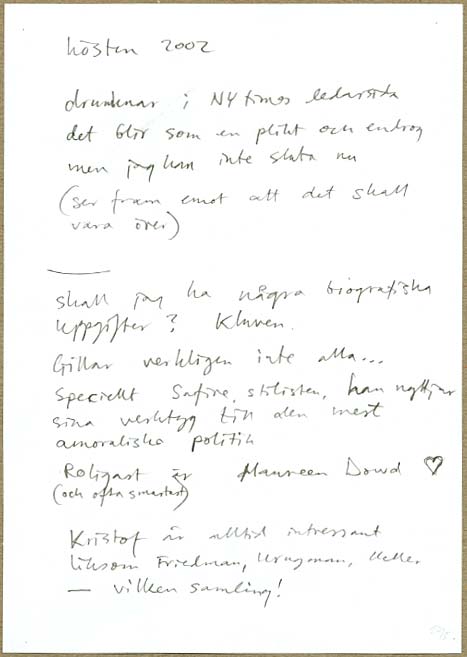 hösten 2002
drunknar i NY times ledarsida
det blir som en plikt och en drog
men jag kan inte sluta nu
(ser fram emot att det skall
vara över)
skall jag ha några biografiska
uppgifter? Kluven.
Gillar verkligen inte alla...
Speciellt Safire, stilisten, han nyttjar
sina verktyg till den mest
amoraliska politik
Roligast är Maureen Dowd ♡
(och ofta smartast)
Kristof är alltid intressant
liksom Friedman, Krugman, Keller
— vilken samling!